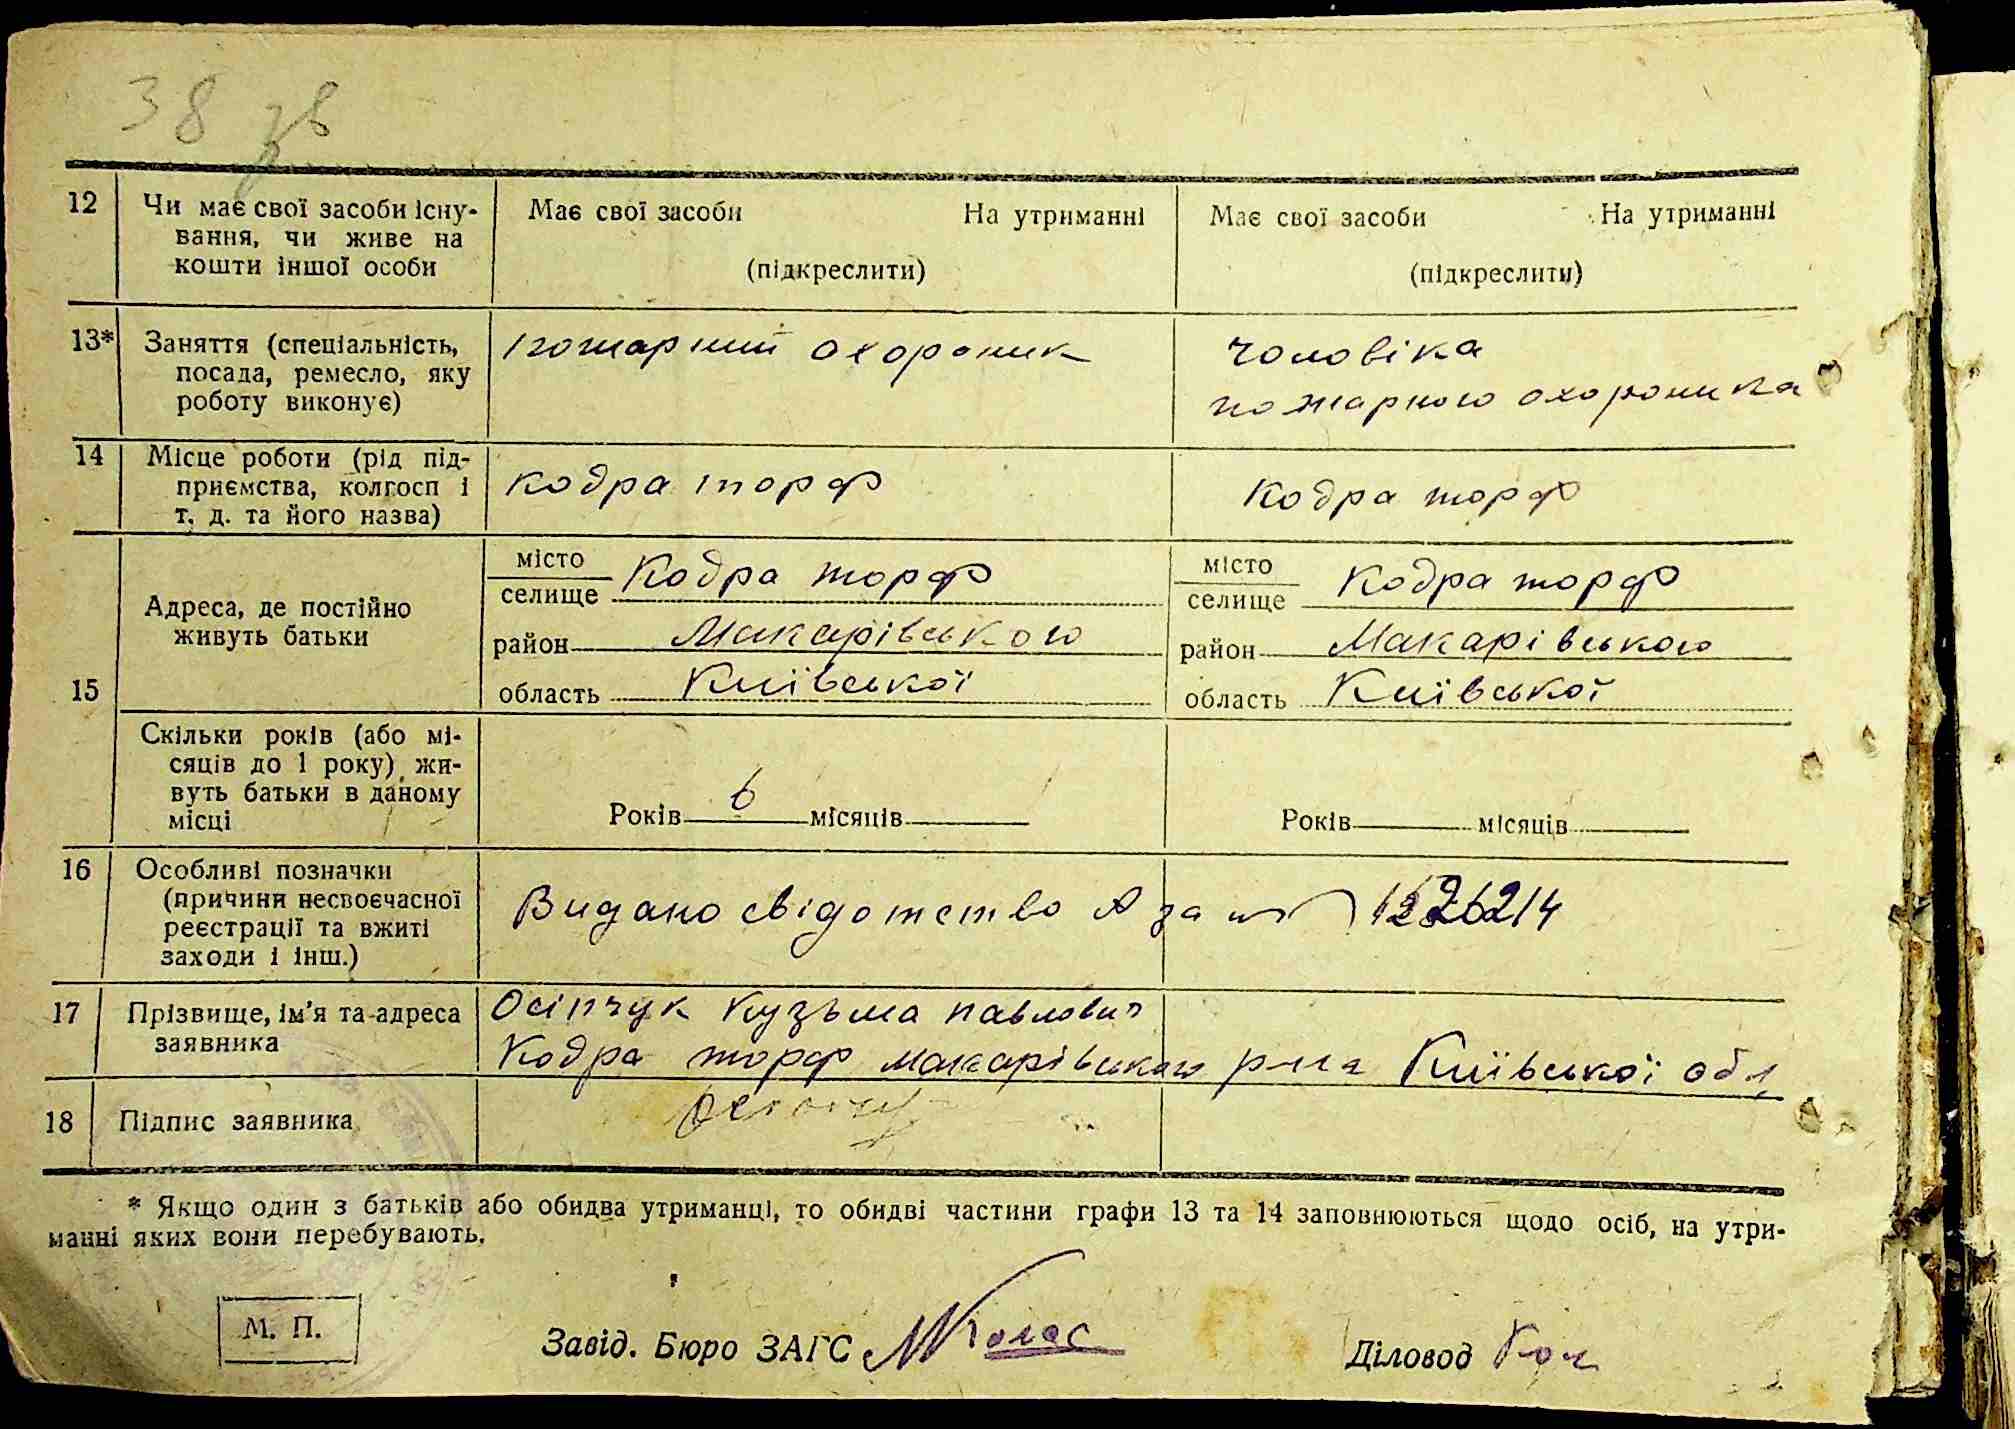 38 зв
12 Чи має свої засоби існу- Має свої засоби На утриманні Має свої засоби На утриманні
вання, чи живе на
кошти іншої особи (підкреслити) (підкреслити)
13* Заняття (спеціальність, пожарний охороник чоловіка
посада, ремесло, яку
роботу виконує) пожарного охороника
14 Місце роботи (рід під-
приємства, колгосп і кодра торф Кодра торф
т. д. та його назва)
місто Кодра торф місто Кодра торф
селище селище
Адреса, де постійно
живуть батьки район Макарівського район Макарівського
15 область Київської область Київської
Скільки років (або мі-
сяців до 1 року) жи-
вуть батьки в даному
місці Років 6 місяців Років місяців
16 Особливі позначки
(причини несвоєчасної Видано свідотство А за
реєстрації та вжиті
заходи і інш.)
17 Прізвище, ім'я та адреса Осіпчук Кузьма павлович
заявника Кодра торф макарівського р-на Київської обл,
18 Підпис заявника
* Якщо один з батьків або обидва утриманці, то обидві частини графи 13 та 14 заповнюються щодо осіб, на утри-
манні яких вони перебувають.
М. П.
Завід. Бюро ЗАГС Діловод